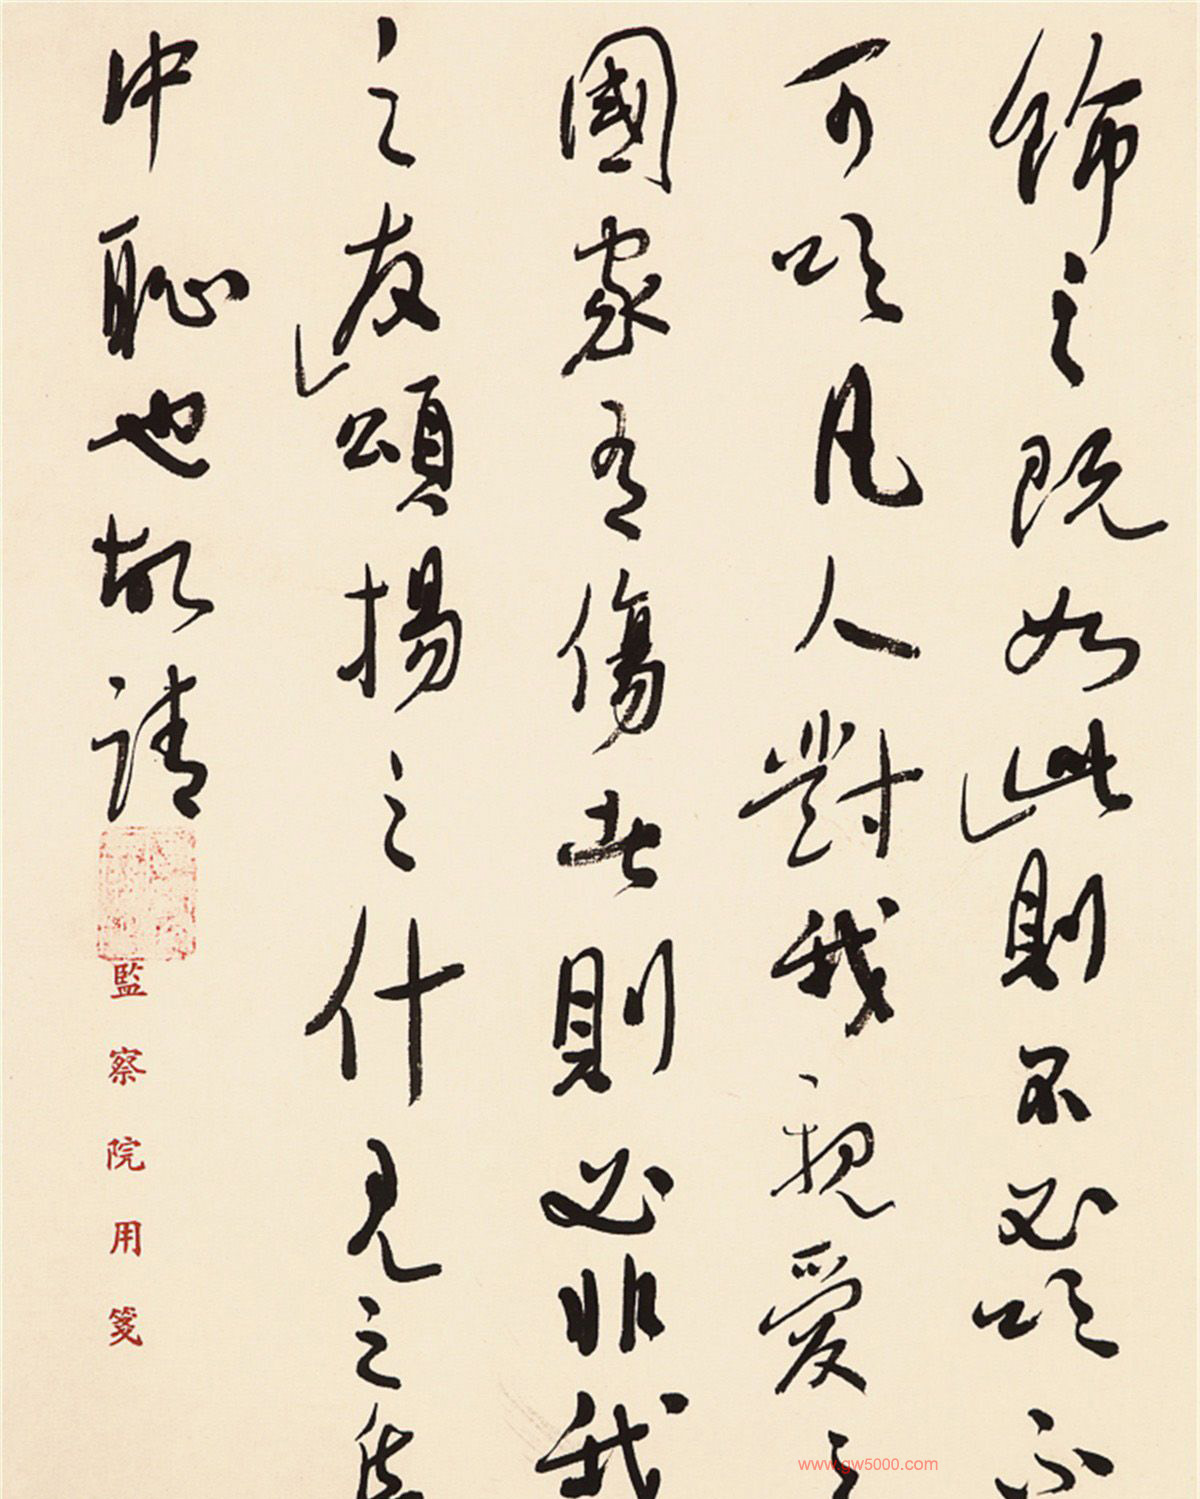 飾之既如此則不必吹不
可吹凡人對我親愛之
國家有傷者則必非我
之友頌揚之什見之
中恥也故請
監察院用箋
www.gw5000.com